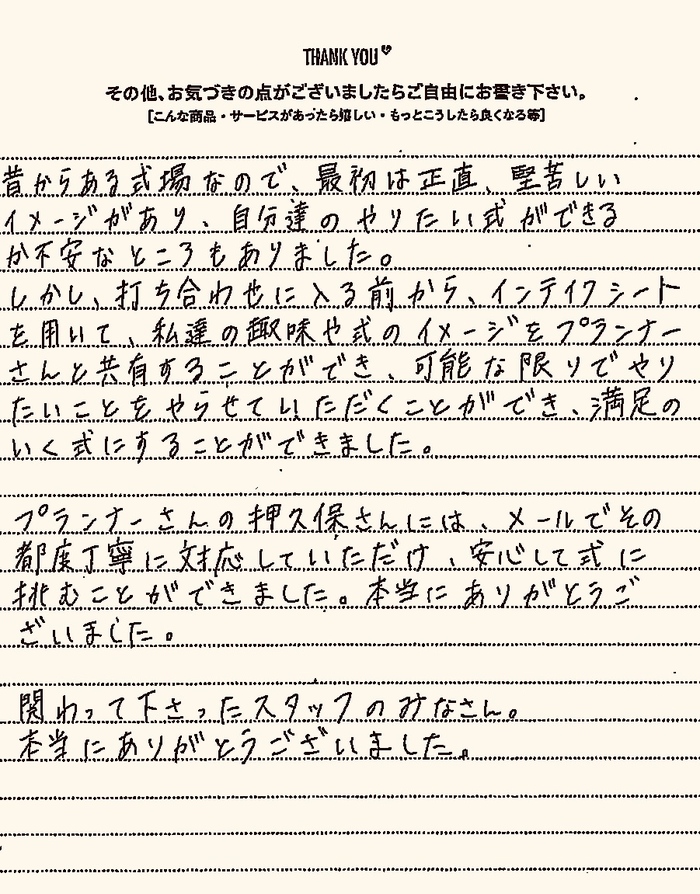 THANK YOU
その他、お気づきの点がございましたらご自由にお書き下さい。
[こんな商品・サービスがあったら嬉しい・もっとこうしたら良くなる等]
昔からある式場なので、最初は正直、堅苦しい
イメージがあり、自分達のやりたい式ができる
か不安なところもありました。
しかし、打ち合わせに入る前から、インテイクシート
を用いて、私達の趣味や式のイメージをプランナー
さんと共有することができ、可能な限りでやり
たいことをやらせていただくことができ、満足の
いく式にすることができました。
プランナーさんの押久保さんには、メールでその
都度丁寧に対応していただけ、安心して式に
挑むことができました。本当にありがとうご
ざいました。
関わって下さったスタッフのみなさん。
本当にありがとうございました。